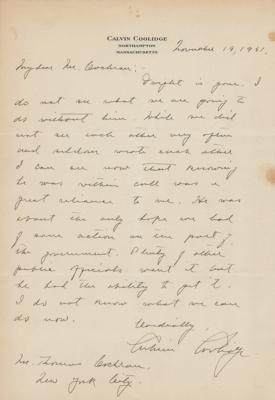 CALVIN COOLIDGE
NORTHAMPTON
MASSACHUSETTS
November 19, 1931.
My dear Mr. Cochran:-
Dwight is gone. I
do not see what we are going to
do without him. While we did
not see each other very often
and seldom wrote each other
I can see now that knowing
he was within call was a
great reliance to me. He was
about the only hope we had
of some action on the part of
the government. Plenty of other
public officials want it but
he had the ability to get it.
I do not know what we can
do now.
Cordially,
Calvin Coolidge
Mr. Thomas Cochran,
New York City.